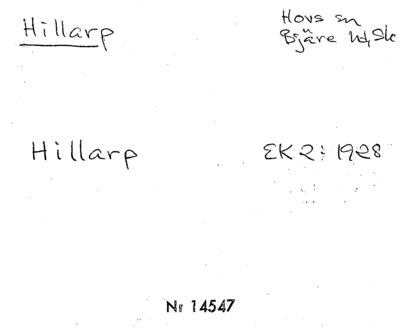 Hillarp
Hovs sn
Bjäre hd, Sk
Hillarp
EK 2: 1928
Nr 14547